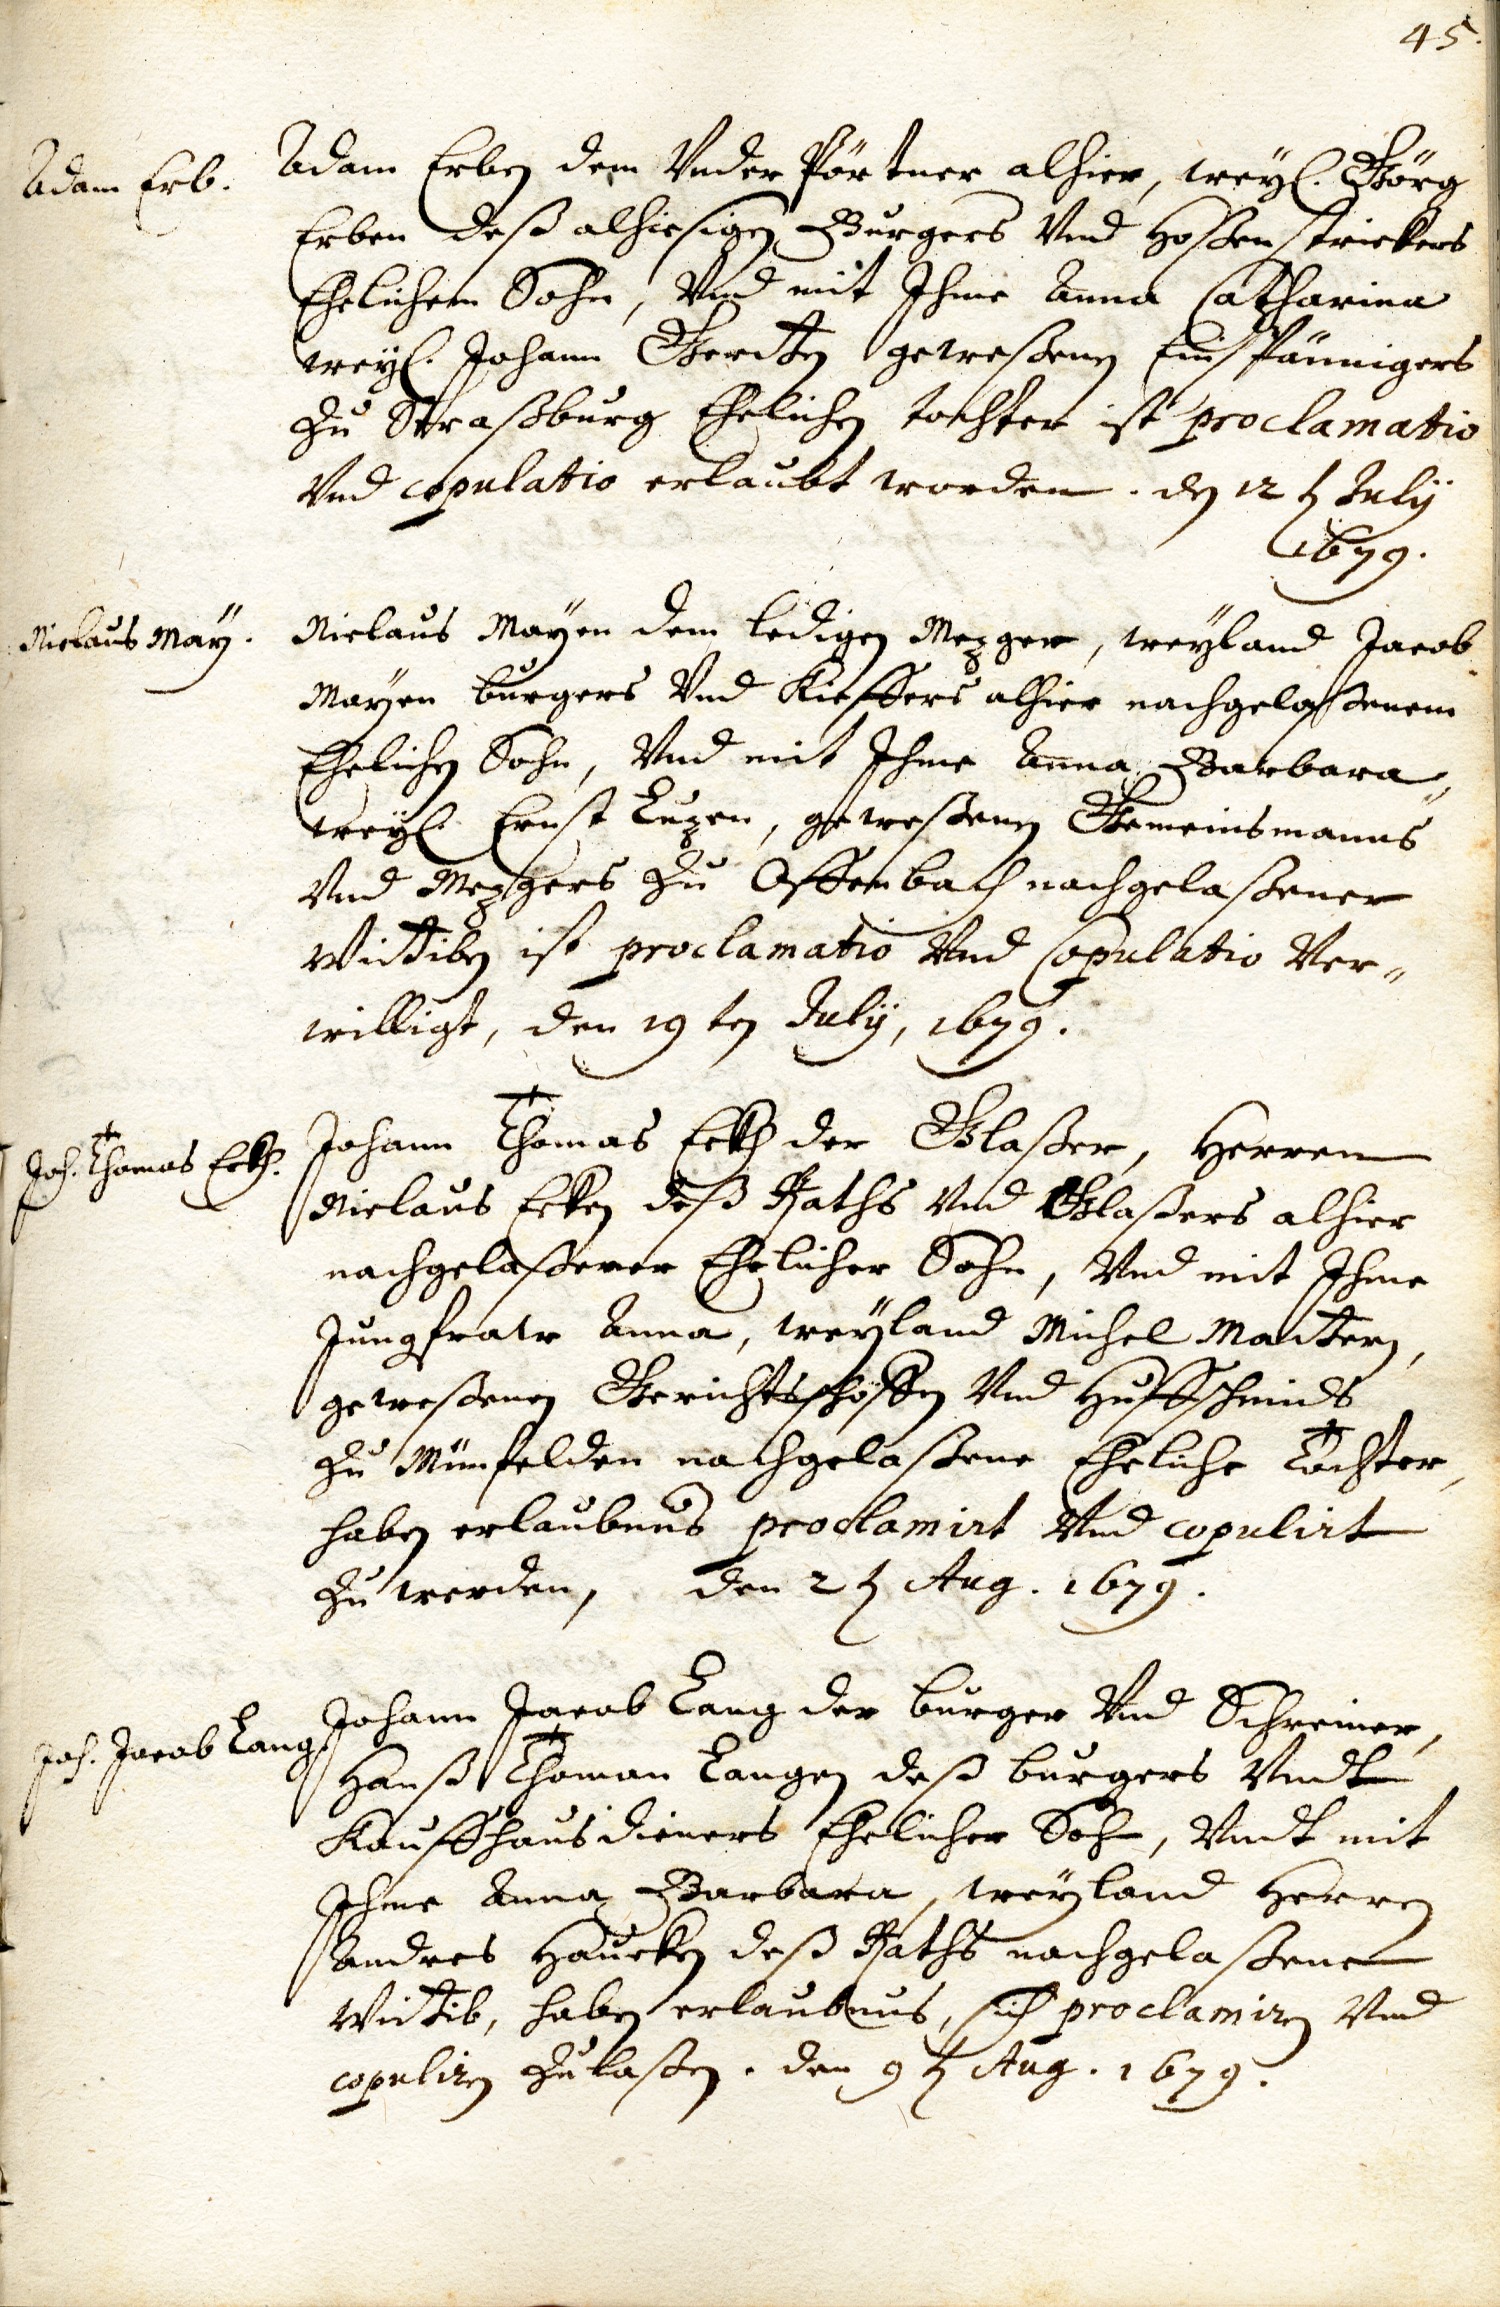 45.
Adam Erb.
Adam Erben dem Under Pörtner alhier, weyl. Görg
Erben deß alhiesigen Burgers Und Hoßenstrickers
Ehelichem Sohn, Und mit Ihme Anna Catharina
weyl. Johann gewesßenen Einspännigers
zu Straßburg Ehelichen tochter ist proclamatio
Und copulatio erlaubt worden. den 12 t July
1679.
Niclaus Maÿ.
Niclaus Maÿen dem ledigen Mezger, weyland Jacob
Maÿen burgers Und Kieffers alhier nachgelaßenem
Ehelichen Sohn, Und mit Ihme Anna Barbara,
weyl. Ernst Luzen, geweßenen Gemeinsmanns
Und Mezgers zu Offenbach nachgelaßener
Wittiben ist proclamatio Und Copulatio Ver„
willigt, den 19 ten July, 1679.
Joh. Thomas Eckh.
Johann Thomas Eckh der Glaßer, Herren
Niclaus Ecken deß Raths Und Glaßers alhier
nachgelaßener Ehelicher Sohn, Und mit Ihme
Jungfraw Anna, weyland Michel Matters,
geweßenen Gerichtsschöffen Und Huffschmids
zu Münfelden nachgelaßene Eheliche Tochter,
haben erlaubnus proclamirt Und copulirt
zu werden, den 2 t Aug. 1679.
Joh. Jacob Lang.
Johann Jacob Lang der burger Und Schreiner,
Hanß Thoman Langen deß burgers Undt
Kauffhaus dieners Ehelicher Sohn, Undt mit
Ihme Anna Barbara, weyland Herren
Andres Haucken deß Raths nachgelaßene
Wittib, haben erlaubnus, sich proclamiren Und
copuliren zu laßen. den 9 t Aug. 1679.